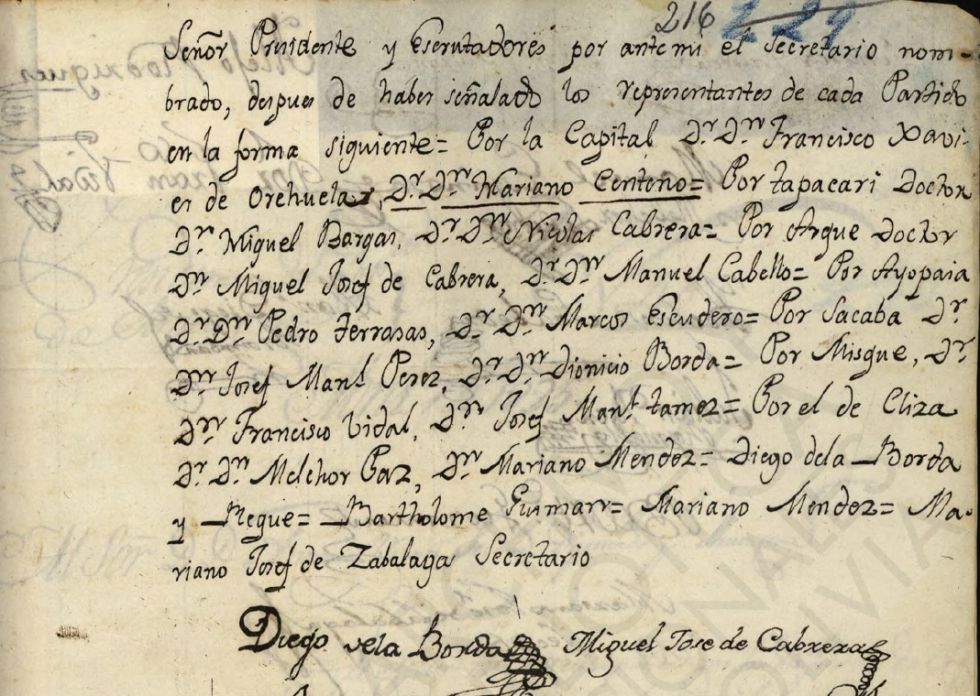 216 221
Señor Presidente y Escrutadores por ante mi el Secretario nom-
brado, despues de haber señalado los representantes de cada Partido
en la forma siguiente= Por la Capital Dr. Dn. Francisco Xavi-
er de Orehuela, Dr. Dn. Mariano Centeno= Por tapacari Doctor
Dn. Miguel Bargas, Dr. Dn. Nicolas Cabrera= Por Arque Doctor
Dn. Miguel Josef de Cabrera, Dr. Dn. Manuel Cabello= Por Ayopaia
Dr. Dn. Pedro terrasas, Dr. Dn. Marcos Escudero= Por Sacaba Dr.
Dn. Josef Manl. Perez, Dr. Dn. Dionicio Borda= Por Misque, Dr.
Dn. Francisco Vidal, Dn. Josef Manl. tames= Por el de Cliza
Dr. Dn. Melchor Paz, Dn. Mariano Mendez= Diego dela Borda
y Regue= Bartholome Guiman= Mariano Mendez= Ma-
riano Josef de Zabalaga Secretario
Diego dela Borda Miguel Jose de Cabrera